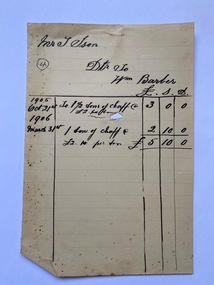 Mr J. Ison
4
Dr. To
Wm Barber
£. S. D.
1905
Oct 21st To 1 1/2 tons of chaff @ 3 0 0
£2 per ton
1906
March 31st 1 ton of chaff @ 2 10 0
£2.10 per ton £ 5 10 0